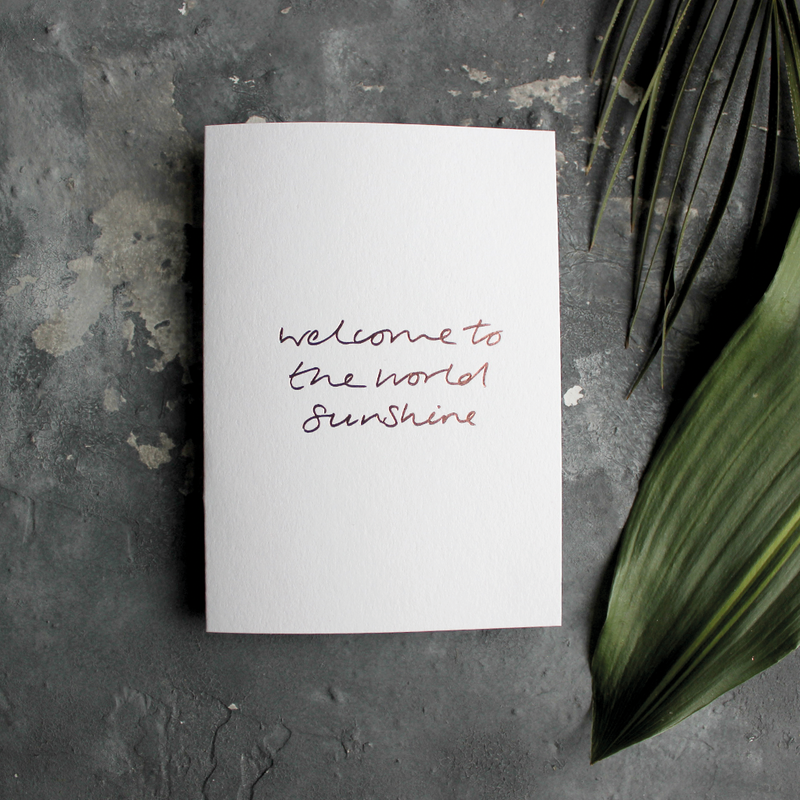 welcome to
the world
sunshine